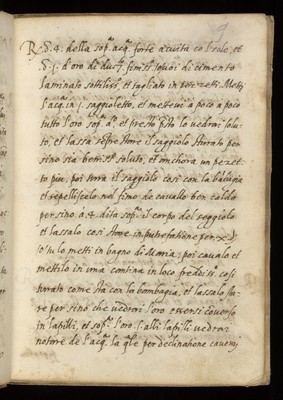 9
R. ʒ. 4. della sop.ª acq. forte acuita col sole, et
ʒ. j. d'oro di duc.ti
laminato sottiliss.º et tagliato in pezzetti. Metti
l'acq. in j. saggioletto, et mettevi à poco à poco
tutto l'oro sop.º et presto lo vedrai solu-
to, et lassa star il saggiolo turato per
sino sia beniss.º soluto, et anchora un pezet-
to piu, poi tura il saggiolo cosi con la bambagia
et repelliscelo nel fimo de cavallo ben caldo
per sino a. 4. dita sop.ª il corpo del saggiolo
et lassalo cosi stare in putrefatione per
o tu lo metti in bagno di Maria; poi cavalo et
mettilo in una cantina in loco frediss.º cosi
turato come sta con la bombagia, et lassalo sta-
re per sino che vedrai l'oro essersi converso
in lapilli, et sop.ª l'oro, i. alli lapilli vedrai
notare de l'acq. la q.le per declinatione caverai